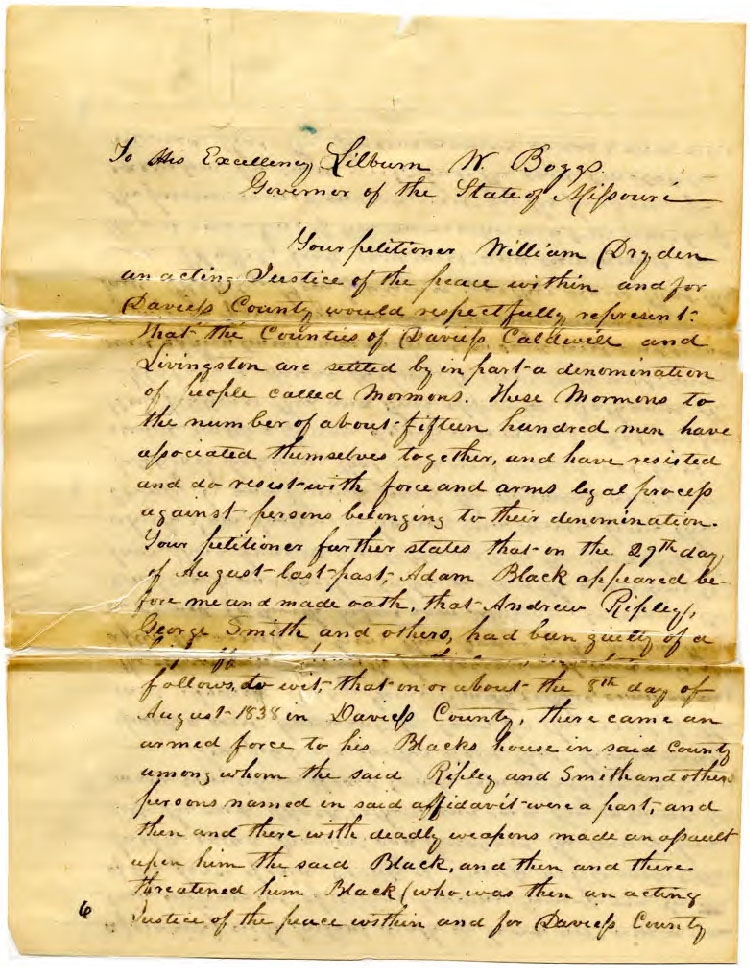 To His Excellency Lilburn W. Boggs.
Governor of the State of Missouri
Your petitioner William Dryden
an acting Justice of the peace within and for
Daviess County would respectfully represent:
That the Counties of Daviess Caldwell and
Livingston are settled by in part a denomination
of people called Mormons. These Mormons to
the number of about fifteen hundred men have
associated themselves together, and have resisted
and do resist with force and arms legal process
against persons belonging to their denomination.
Your petitioner further states that on the 29th day
of August last past, Adam Black appeared be-
fore me and made oath, that Andrew Ripley,
George Smith and others, had been guilty of a
follows, to wit, that on or about the 8th day of
August 1838 in Daviess County, there came an
armed force to his Blacks house in said County
among whom the said Ripley and Smith and other
persons named in said affidavit were a part, and
then and there with deadly weapons made an assault
upon him the said Black, and then and there
threatened him Black (who was then an acting
6
Justice of the peace within and for Daviess County